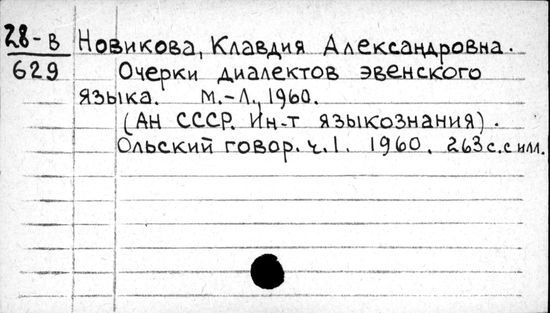 28-в Новикова, Клавдия Александровна.
629 Очерки диалектов эвенского
языка. М.-Л., 1960.
(АН СССР. Ин-т языкознания).
Ольский говор. ч.1. 1960. 263 с. с илл.